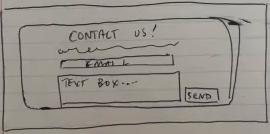 CONTACT US!
EMAIL
TEXT BOX...
SEND